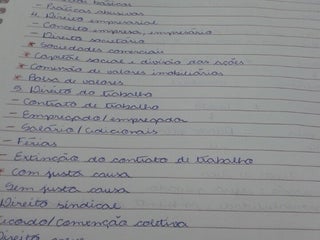 básicos
- Práticas abusivas
4. Direito empresarial
- Conceito empresa, empresário
- Direito societário
* Sociedades comerciais
* Capital social e divisão das ações
* Comissão de valores imobiliários
* Bolsa de valores
5. Direito do trabalho
- Contrato de trabalho
- Empregado/empregador
- Salário/adicionais
- Férias
- Extinção do contrato de trabalho
* Com justa causa
* Sem justa causa
Direito sindical
Acordo/Convenção coletiva
Direito